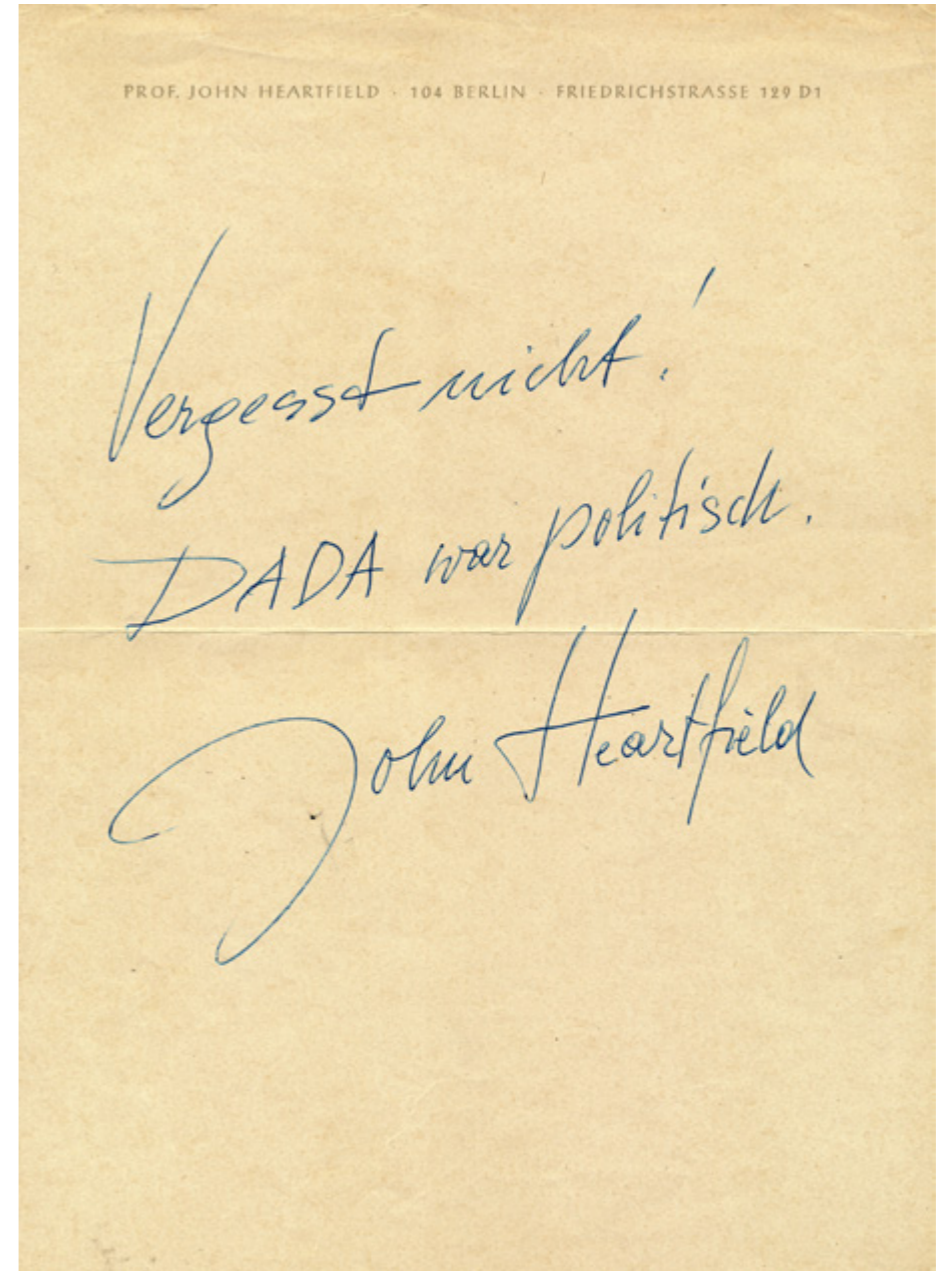 PROF. JOHN HEARTFIELD · 104 BERLIN · FRIEDRICHSTRASSE 129 D1
Vergesst nicht!
DADA war politisch.
John Heartfield